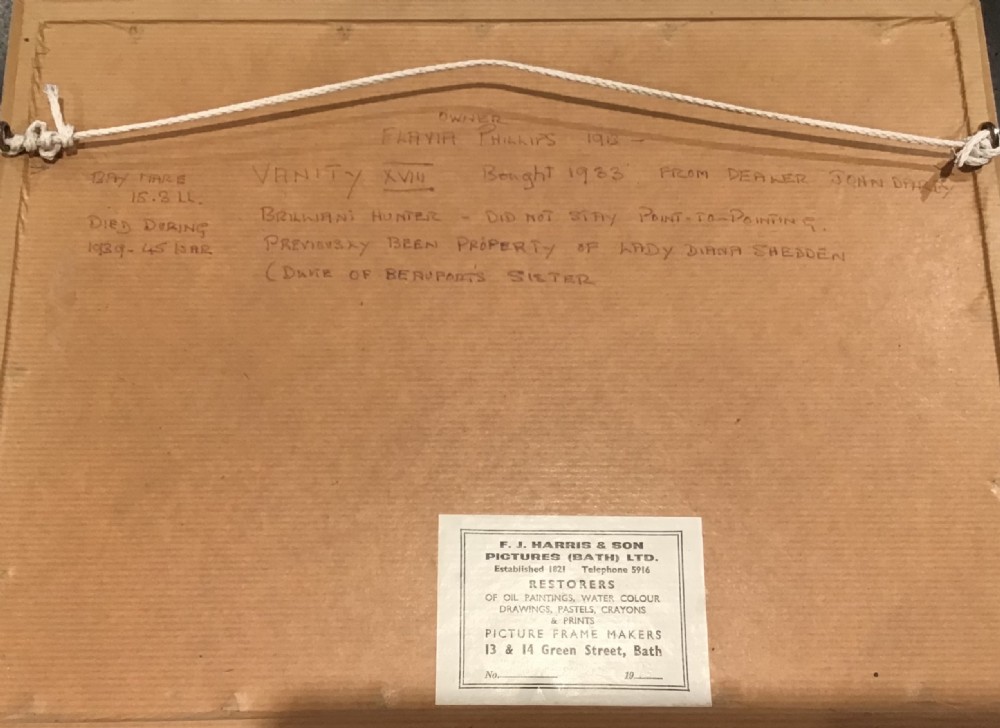 OWNER
FLAVIA PHILLIPS 1913 -
VANITY XVIII Bought 1933 FROM DEALER JOHN
BAY MARE
15.3
BRILLIANT HUNTER - DID NOT STAY POINT-TO-POINTING.
DIED DURING
1939-45 WAR
PREVIOUSLY BEEN PROPERTY OF LADY DIANA SHEDDEN
(DUKE OF BEAUFORT'S SISTER
F. J. HARRIS & SON
PICTURES (BATH) LTD.
Established 1821 Telephone 5916
RESTORERS
OF OIL PAINTINGS, WATER COLOUR
DRAWINGS, PASTELS, CRAYONS
& PRINTS
PICTURE FRAME MAKERS
13 & 14 Green Street, Bath
No. 19